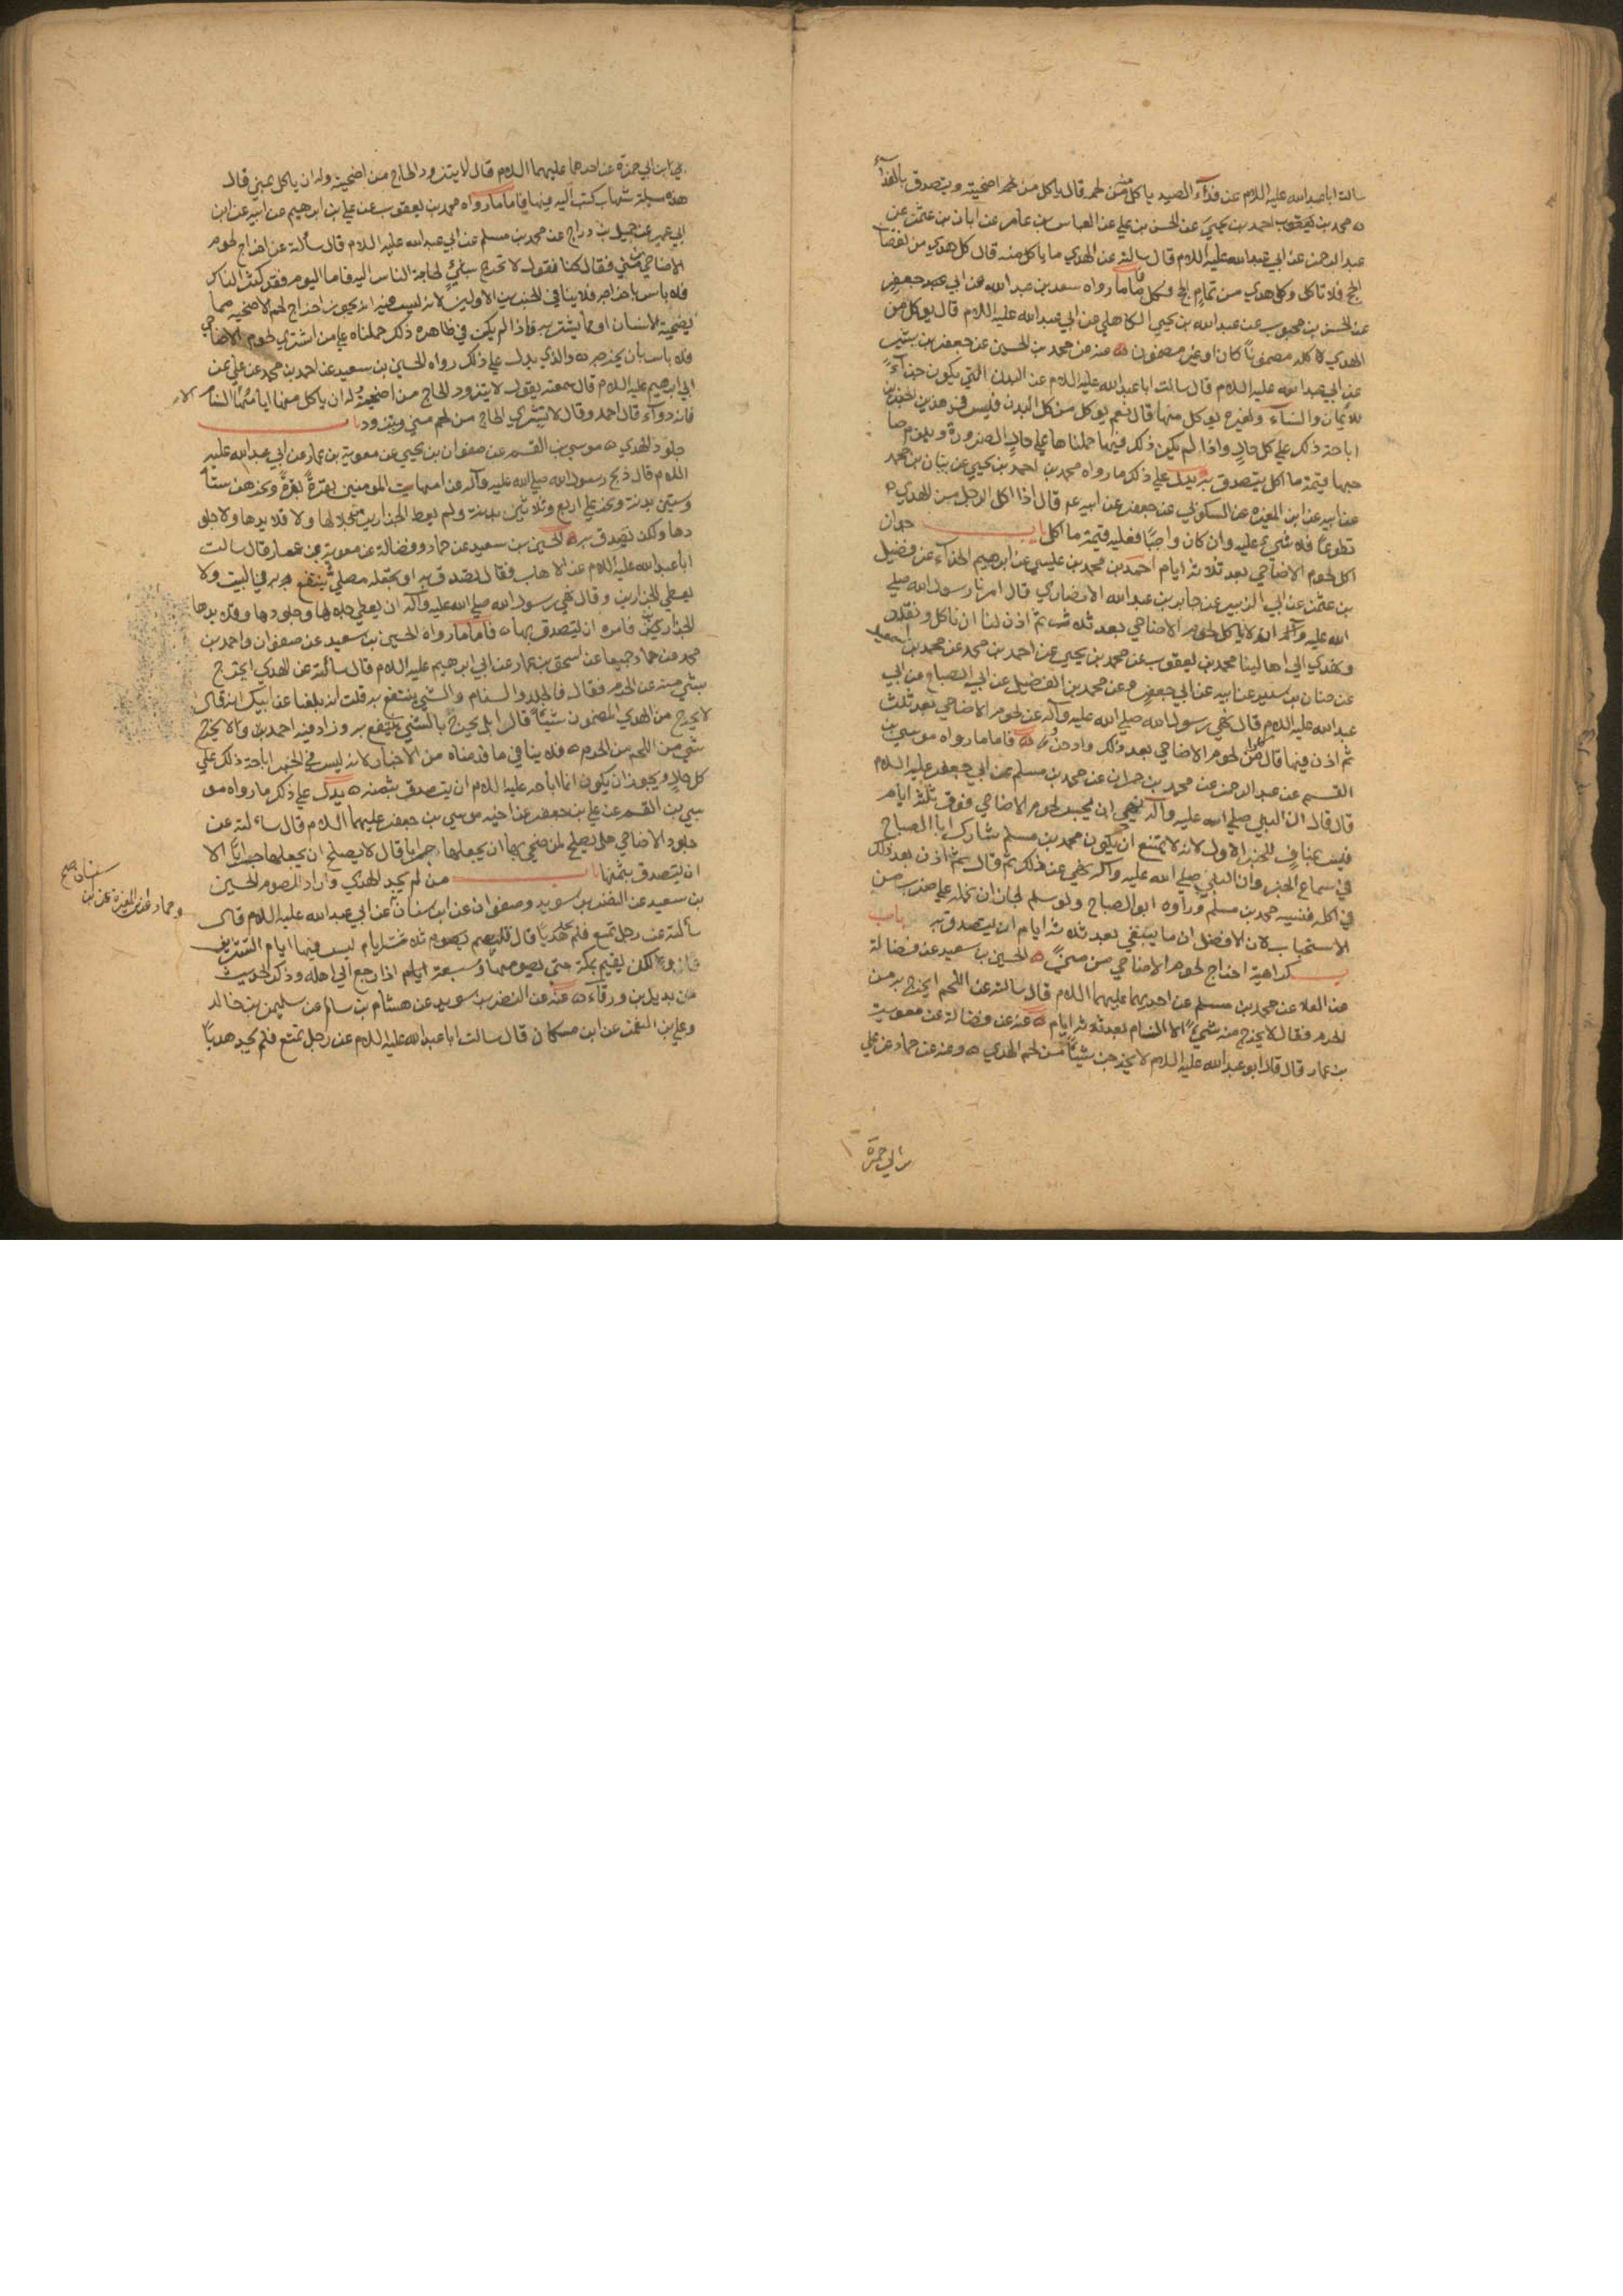 سالت اباعبدالله عليه اللام عن فدآء الصيد ياكل منه من لحمه قال ياكل من لحم اضحيته ويتصدق بالفدآء
محمد بن يعقوب احمد بن يحيى عن الحسن بن علي عن العباس بن عامر عن ابان بن عثمن عن
عبد الرحمن عن ابي عبدالله عليه اللام قال سالته عن الهدي ما ياكل منه قال كل هدي من نقصان
الحج فلا تاكل وكل هدي من تمام الحج فكل فاما ما رواه سعد بن عبد الله عن ابي جعفر
عن الحسن بن محبوب عن عبدالله بن يحيى الكاهلي عن ابي عبدالله عليه اللام قال يوكل من
الهدي كله مضمونا كان او غير مضمون عنه عن محمد بن الحسين عن جعفر بن بشير
عن ابي عبدالله عليه اللام قال سالت اباعبدالله عليه اللام عن البدن التي يكون جزآء
للايمان والنسآء ولغيره يوكل منها قال نعم يوكل من كل البدن فليس في هذين الخبرين
اباحة ذلك على كل حال واذا لم يكن ذلك فيهما حملناها على حال الضرورة ويلزم صا
حبها قيمة ما اكل يتصدق به يدل على ذلك ما رواه محمد بن احمد بن يحيى عن بنان بن محمد
عن ابيه عن ابن المغيره عن السكوني عن جعفر عن ابيه عم قال اذا اكل الرجل من الهدي
تطوعا فلا شيء عليه وان كان واجبا فعليه قيمة ما اكل باب جواز
اكل لحوم الاضاحي بعد ثلاثة ايام احمد بن محمد بن عيسى عن ابرهيم الحذآء عن فضيل
بن عثمن عن ابي الزبير عن جابر بن عبدالله الانصاري قال امرنا رسول الله صلى
الله عليه وآله ان لا ياكل لحوم الاضاحي بعد ثلاث ثم اذن لنا ان ناكل ونقدد
ونهدي الى اهالينا محمد بن يعقوب عن محمد بن يحيى عن احمد بن محمد عن محمد بن اسمعيل
عن حنان بن سدير عن ابيه عن ابي جعفر وعن محمد بن الفضيل عن ابي الصباح عن ابي
عبدالله عليه اللام قال نهى رسول الله صلى الله عليه وآله عن لحوم الاضاحي بعد ثلث
ثم اذن فيها قال كلوا من لحوم الاضاحي بعد ذلك وادخروا فاما ما رواه موسى بن
القسم عن عبد الرحمن عن محمد بن حمران عن محمد بن مسلم عن ابي جعفر عليه اللام
قال قال ان النبي صلى الله عليه وآله نهى ان يحبس لحوم الاضاحي فوق ثلثة ايام
فليس بمناف للخبر الاول لانه لا يمتنع ان يكون محمد بن مسلم شارك ابا الصباح
في سماع الخبر وان النبي صلى الله عليه وآله نهى عن ذلك ثم قال ثم اذن بعد ذلك
في اكله فنسيه محمد بن مسلم ورواه ابو الصباح ولو سلم لجاز ان نحمله على ضرب من
الاستحباب لان الافضل ان ما يبقى بعد ثلاثة ايام ان يتصدق به باب
كراهية اخراج لحوم الاضاحي من منى الحسين بن سعيد عن فضالة
عن العلا عن محمد بن مسلم عن احدهما عليهما اللام قال سالته عن اللحم ايخرج به من
الحرم فقال لا يخرج منه شيء الا السنام بعد ثلاثة ايام عنه عن فضالة عن معوية
بن عمار قال قال ابو عبدالله عليه اللام لا يخرجن شيئا من لحم الهدي وعنه عن حماد عن علي
بن ابي حمزة
علي بن ابي حمزة عن احدهما عليهما اللام قال لا يتزود الحاج من اضحيته وله ان ياكل بمنى قال
هذه مسلة شهاب كتب اليه فيها فاما ما رواه محمد بن يعقوب عن علي بن ابرهيم عن ابيه عن ابن
ابي عمير عن جميل بن دراج عن محمد بن مسلم عن ابي عبدالله عليه اللام قال سألته عن اخراج لحوم
الاضاحي من منى فقال كنا نقول لا تخرج شيء لحاجة الناس اليه فاما اليوم فقد كثر الناس
فلا باس باخراجه فلا ينافي الخبرين الاولين لانه ليس فيه انه يجوز اخراج لحم الاضحية مما
يضحيه الانسان او مما يشتريه واذا لم يكن في ظاهره ذلك حملناه على من اشترى لحوم الاضاحي
فلا باس بان يخرجه والذي يدل على ذلك رواه الحسين بن سعيد عن احمد بن محمد عن علي عن
ابي ابرهيم عليه اللام قال سمعته يقول لا يتزود الحاج من اضحيته له ان ياكل منها ايامها الا السنام
فانه دوآء قال احمد وقال لا يشتري الحاج من لحم منى ويتزود باب
جلود الهدي موسى بن القسم عن صفوان بن يحيى عن معوية بن عمار عن ابي عبدالله عليه
اللام قال ذبح رسول الله صلى الله عليه وآله عن امهات المومنين بقرة بقرة ونحر هو ستا
وستين بدنة ونحر علي اربع وثلاثين بدنة ولم يعط الجزارين من جلالها ولا قلايدها ولا جلو
دها ولكن تصدق به الحسين بن سعيد عن حماد وفضالة عن معوية بن عمار قال سالت
اباعبدالله عليه اللام عن الاهاب فقال تصدق به او تجعله مصلى ينتفع به في البيت ولا
يعطي الجزارين وقال نهى رسول الله صلى الله عليه وآله ان يعطي جلالها وجلودها وقلايدها
الجزارين فامره ان يتصدق بها فاما ما رواه الحسين بن سعيد عن صفوان واحمد بن
محمد عن حماد جميعا عن اسحق بن عمار عن ابي ابرهيم عليه اللام قال سألته عن الهدي ايخرج
بشي منه عن الحرم فقال فالجلد والسنام والشي ينتفع به قلت انه بلغنا عن ابيك انه قال
لا يخرج من الهدي المضمون شيئا قال بل يخرج بالشي ينتفع به وزاد فيه احمد بن محمد ولا يخرج
شي من اللحم من الحرم فلا ينافي ما قدمناه من الاخبار لانه ليس في الخبر اباحة ذلك على
كل حال ويجوز ان يكون انما اباحه عليه اللام ان يتصدق بثمنه يدل على ذلك ما رواه مو
سى بن القسم عن علي بن جعفر عن اخيه موسى بن جعفر عليهما اللام قال سألته عن
جلود الاضاحي هل يصلح لمن ضحى بها ان يجعلها جرابا قال لا يصلح ان يجعلها جرابا الا
ان يتصدق بثمنها باب من لم يجد الهدي واراد الصوم الحسين
بن سعيد عن النضر بن سويد وصفوان عن ابن سنان عن ابي عبدالله عليه اللام قال
سألته عن رجل تمتع فلم يجد هديا قال فليصم ثلاثة ايام ليس فيها ايام التشريق
ولكن يقيم بمكة حتى يصومها وسبعة ايام اذا رجع الى اهله وذكر الحديث
بديل بن ورقآء عنه عن النضر بن سويد عن هشام بن سالم عن سليمن بن خالد
وعلي بن النعمن عن ابن مسكان قال سالت اباعبدالله عليه اللام عن رجل تمتع فلم يجد هديا